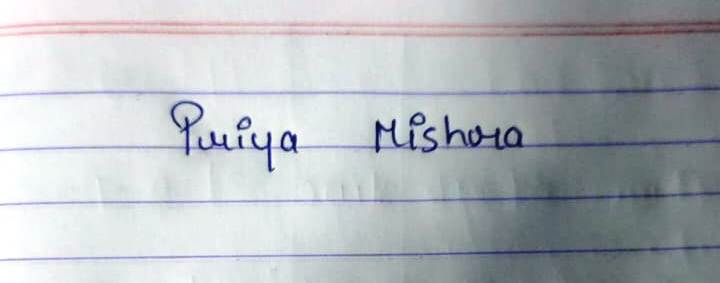 Priya Mishra